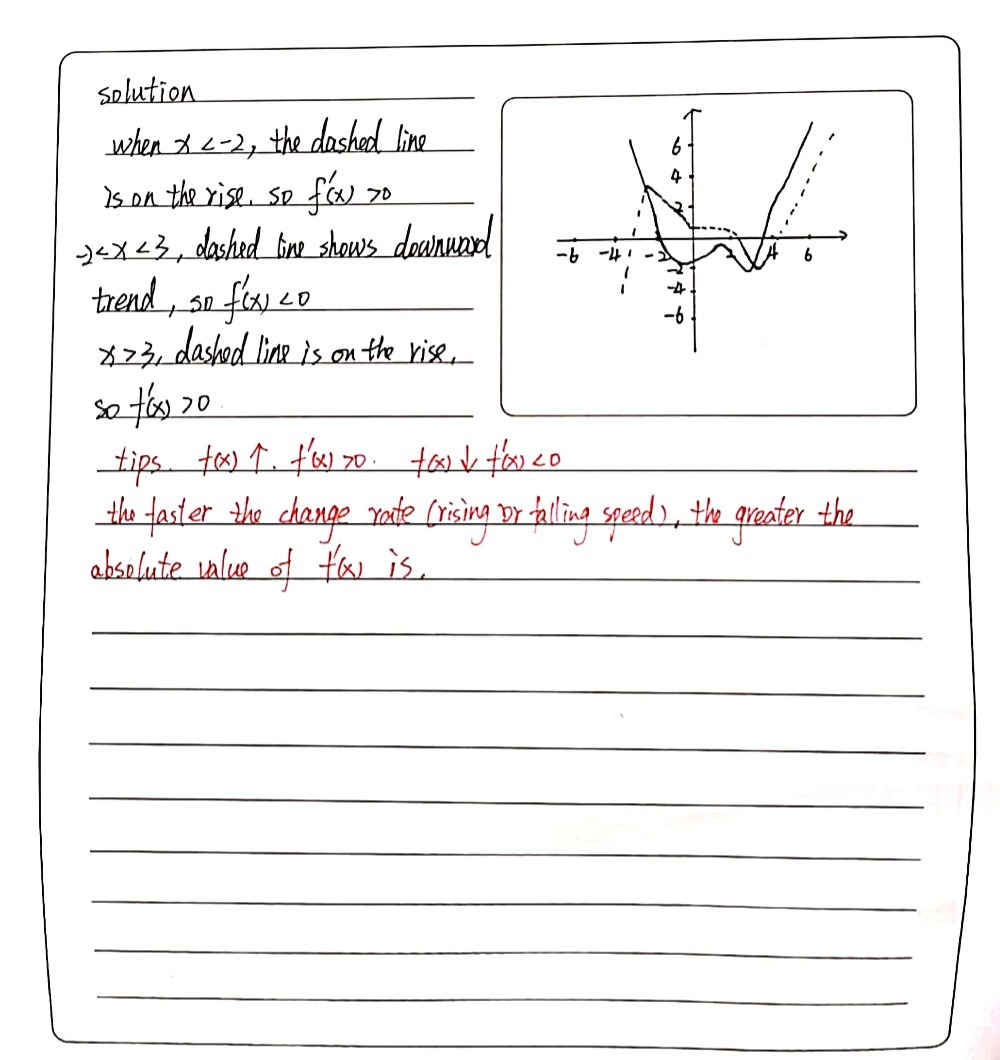 solution
when x<-2, the dashed line
is on the rise. so f'(x) >0
-2<x<3, dashed line shows downward
trend, so f'(x) <0
x>3, dashed line is on the rise.
so f'(x) >0
tips. f(x) ↑. f'(x) >0. f(x) ↓ f'(x) <0
the faster the change rate (rising or falling speed), the greater the
absolute value of f'(x) is.
6
4
2
-6 -4 -2 2 4 6
-2
-4
-6